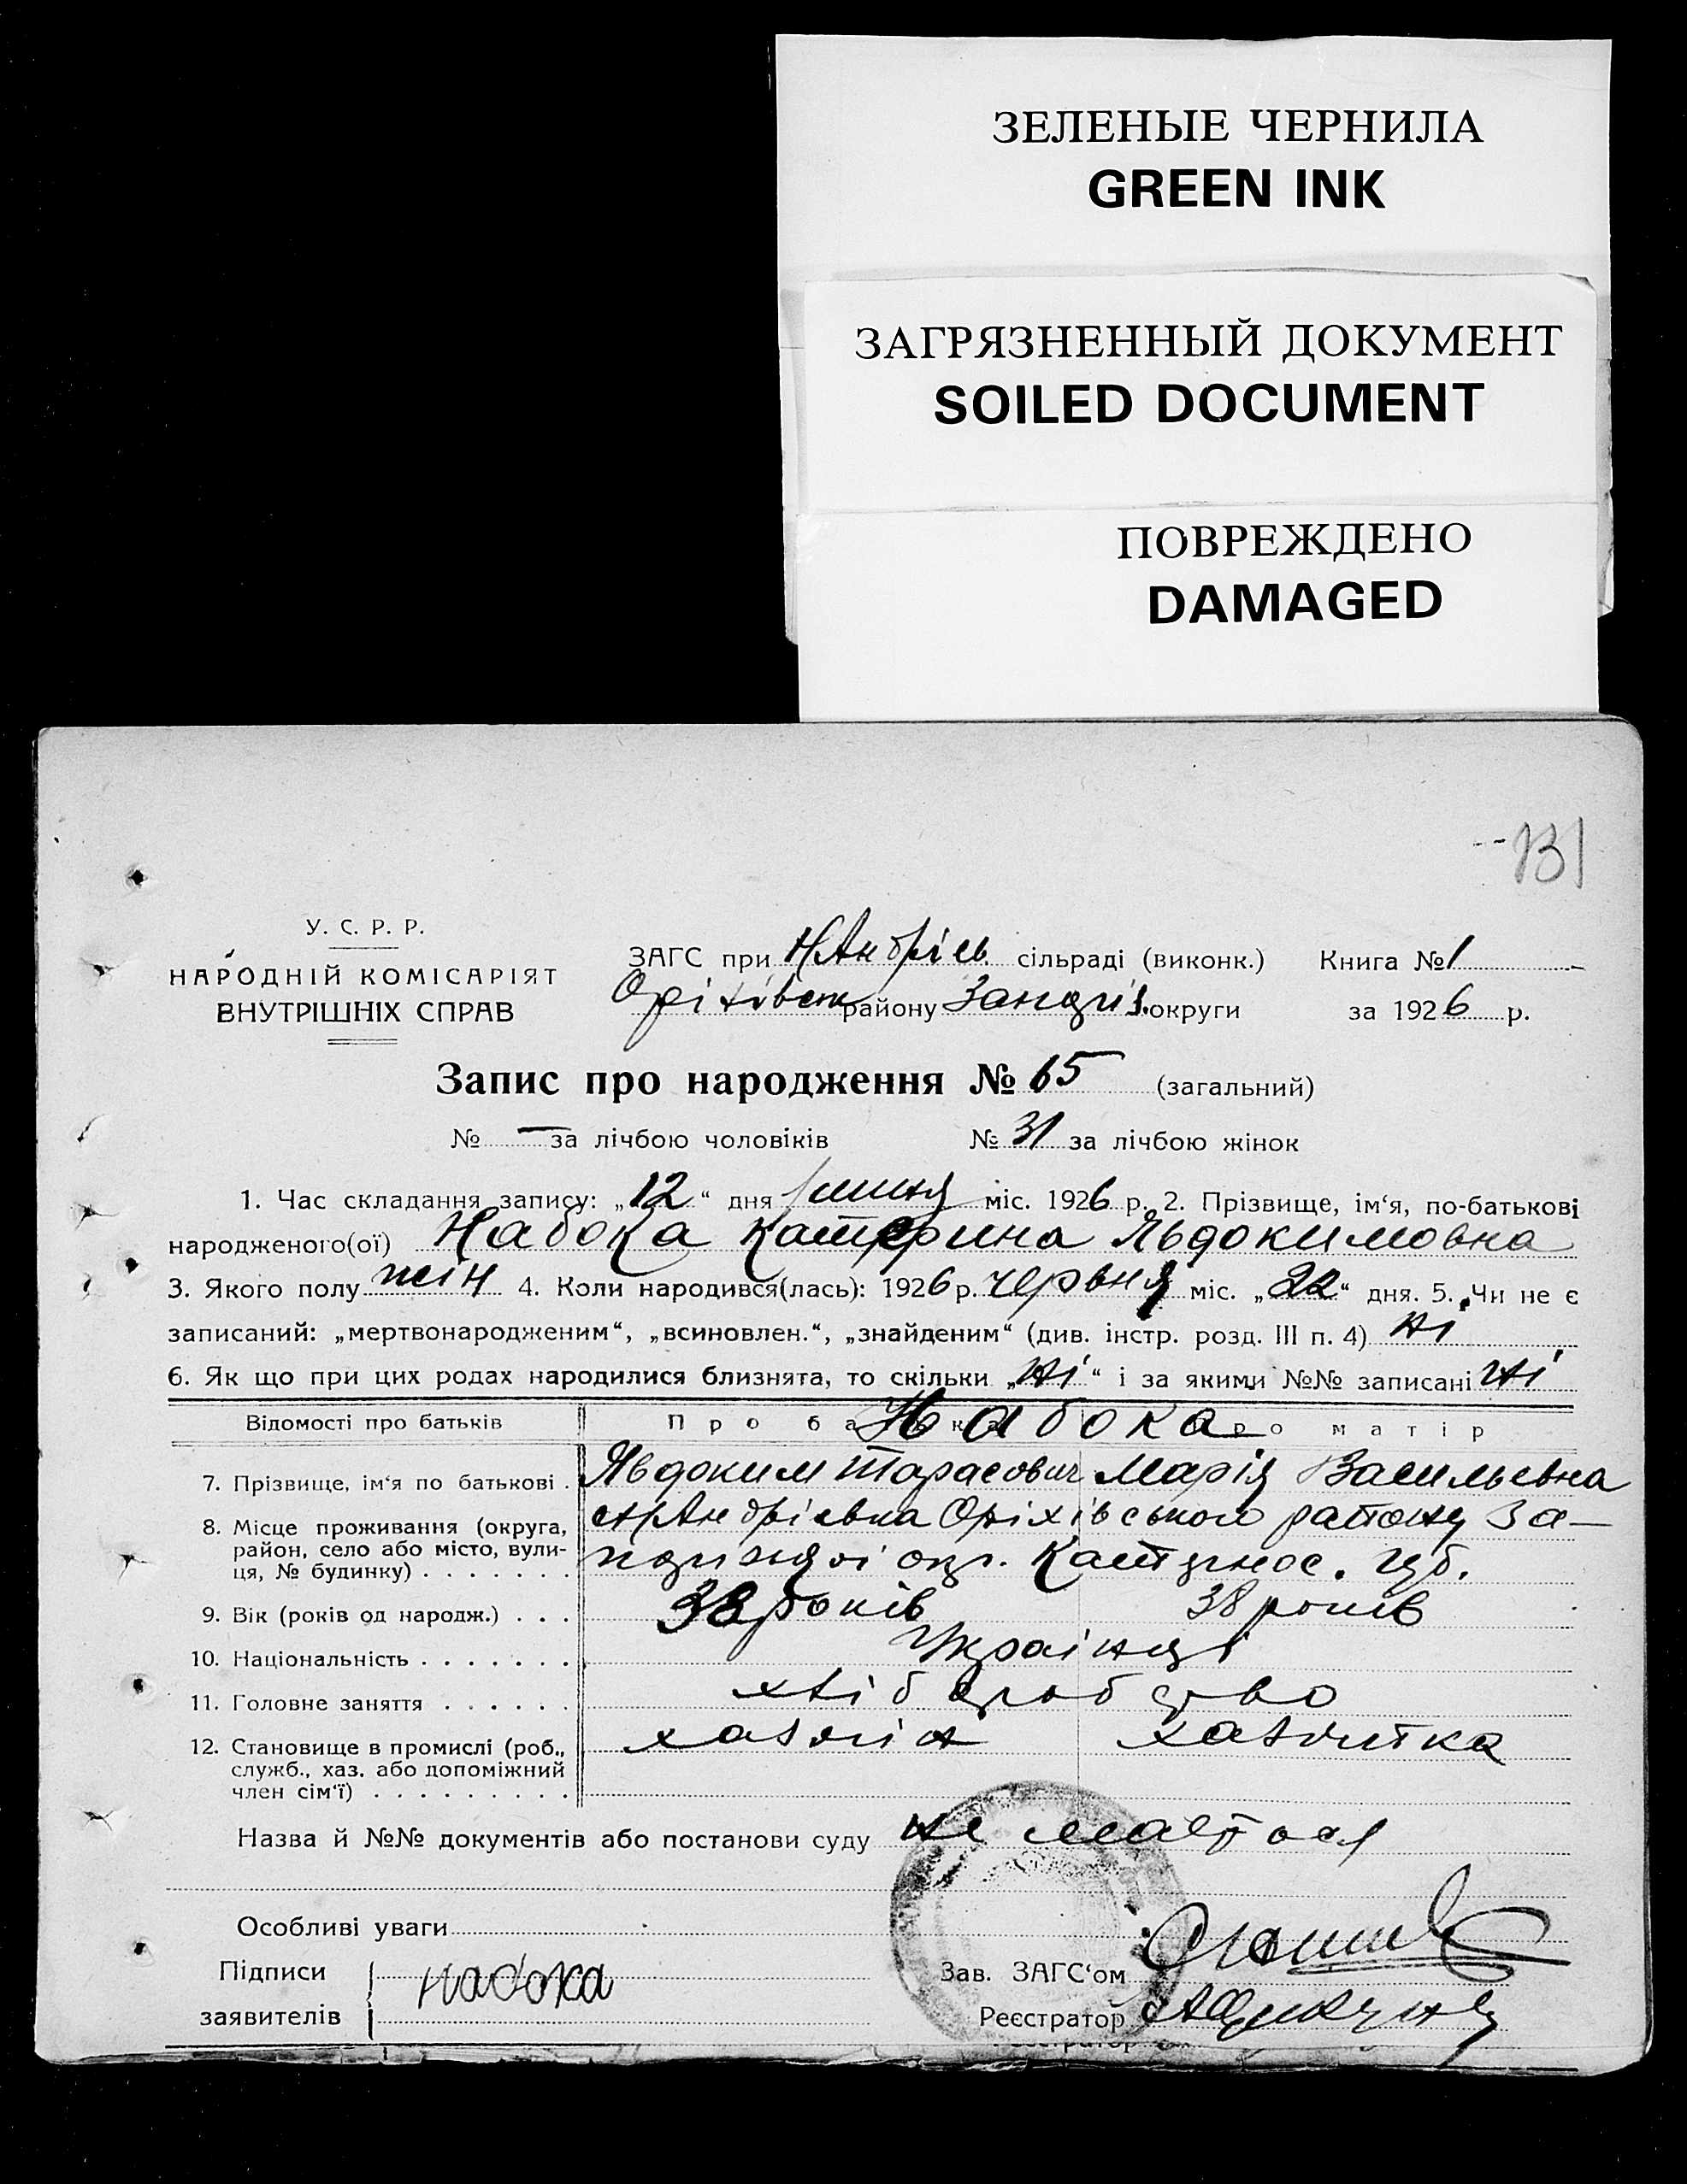 ЗЕЛЕНЫЕ ЧЕРНИЛА
GREEN INK
ЗАГРЯЗНЕННЫЙ ДОКУМЕНТ
SOILED DOCUMENT
ПОВРЕЖДЕНО
DAMAGED
131
У. С. Р. Р.
НАРОДНІЙ КОМІСАРІЯТ
ВНУТРІШНІХ СПРАВ
ЗАГС при Н Андрієв. сільраді (виконк.) Книга № 1
Оріхівськ району округи за 1926 р.
Запис про народження № 65 (загальний)
№ — за лічбою чоловіків № 31 за лічбою жінок
1. Час складання запису: „12“ дня липня міс. 1926 р. 2. Прізвище, ім‘я, по-батькові
народженого(ої) Набока Катерина Явдокимовна
3. Якого полу жін 4. Коли народився(лась): 1926 р. червня міс. „22“ дня. 5. Чи не є
записаний: „мертвонародженим“, „всиновлен.“, „знайденим“ (див. інстр. розд. III п. 4) ні
6. Як що при цих родах народилися близнята, то скільки „ні“ і за якими №№ записані ні
Відомості про батьків Про батька Набока Про матір
7. Прізвище, ім‘я по батькові . Явдоким Тарасович Марія Васильевна
8. Місце проживання (округа, район, село або місто, вули-ця, № будинку) . . . . . . . Н Андрієвка Оріхівського району За-
окр. Катеринос. губ.
9. Вік (років од народж.) . . . 38 років 38 років
10. Національність . . . . . . . Українці
11. Головне заняття . . . . . . хліборобство
12. Становище в промислі (роб., служб., хаз. або допоміжний член сім‘ї) . . . . . . . . . хазяїн хазяйка
Назва й №№ документів або постанови суду не мається
Особливі уваги
Підписи заявителів набока
Зав. ЗАГС‘ом
Реєстратор